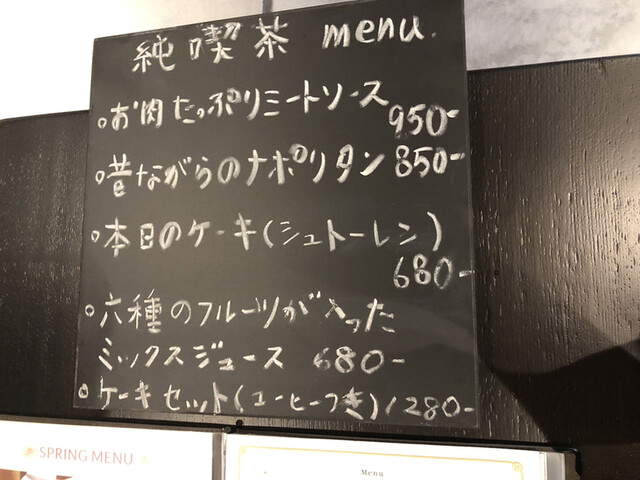 純喫茶 menu.
○お肉たっぷりミートソース 950-
○昔ながらのナポリタン 850-
○本日のケーキ(シュトーレン)
680-
○六種のフルーツが入った
ミックスジュース 680-
○ケーキセット(コーヒーつき)1280-
SPRING MENU
Menu